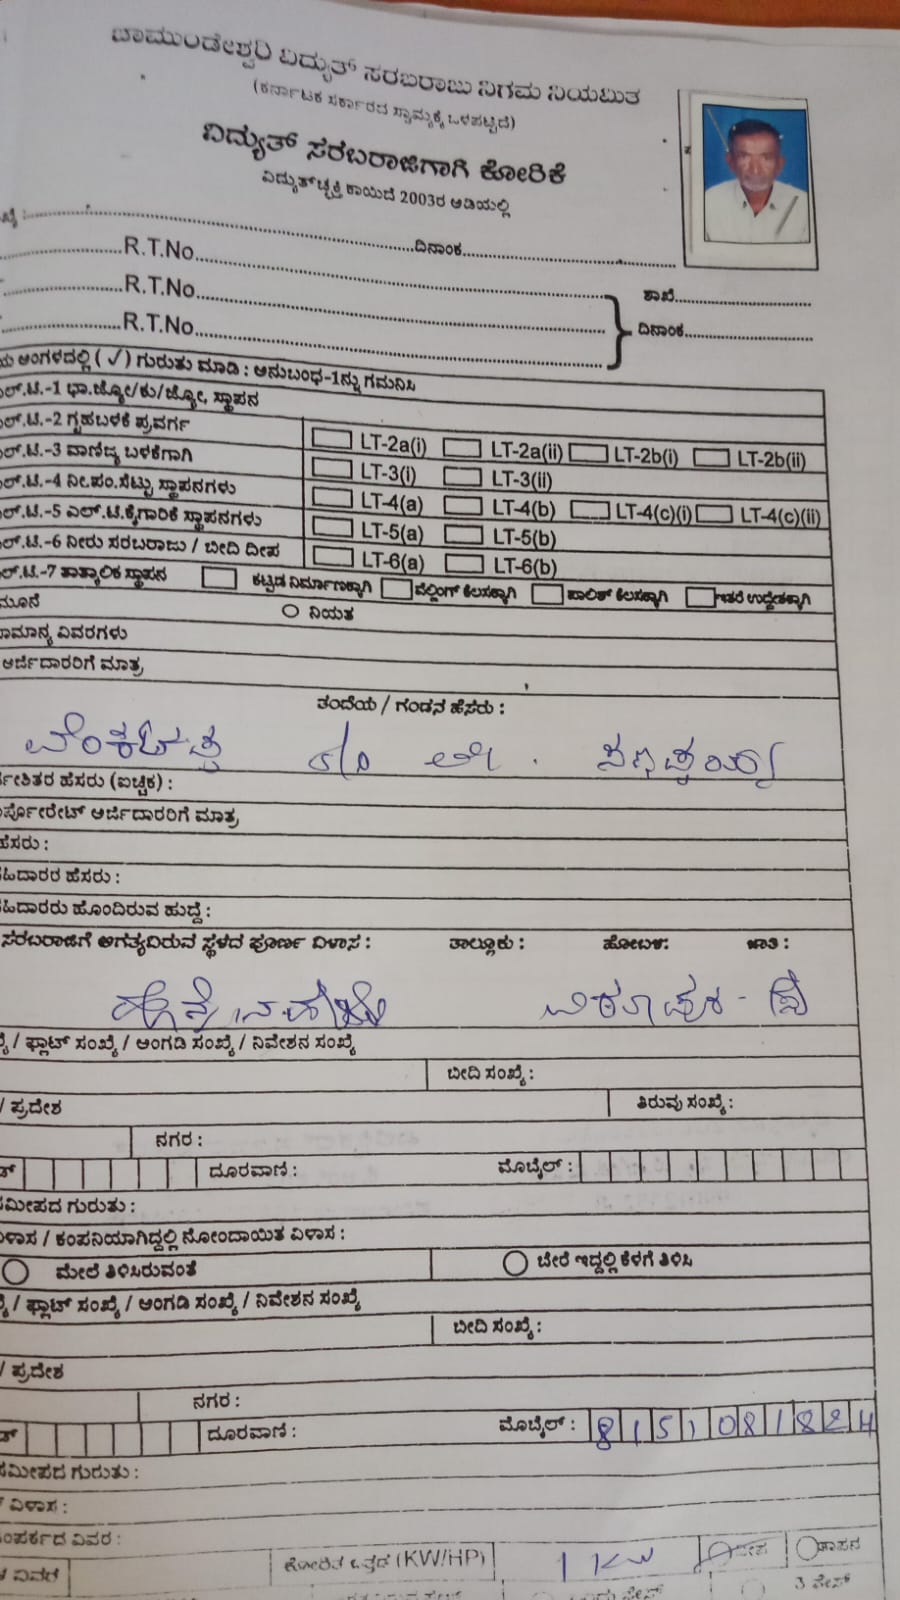 ಚಾಮುಂಡೇಶ್ವರಿ ವಿದ್ಯುತ್ ಸರಬರಾಜು ನಿಗಮ ನಿಯಮಿತ
(ಕರ್ನಾಟಕ ಸರ್ಕಾರದ ಸ್ವಾಮ್ಯಕ್ಕೆ ಒಳಪಟ್ಟಿದೆ)
ವಿದ್ಯುತ್ ಸರಬರಾಜಿಗಾಗಿ ಕೋರಿಕೆ
ವಿದ್ಯುತ್‌ಚ್ಛಕ್ತಿ ಕಾಯಿದೆ 2003ರ ಅಡಿಯಲ್ಲಿ
ದಿನಾಂಕ
R.T.No
R.T.No ಶಾಖೆ
R.T.No ದಿನಾಂಕ
ಅಂಗಳದಲ್ಲಿ (✓) ಗುರುತು ಮಾಡಿ : ಅನುಬಂಧ-1ನ್ನು ಗಮನಿಸಿ
ಲ್.ಟಿ.-1 ಭಾ.ಜ್ಯೋ/ಕು/ಜ್ಯೋ, ಸ್ಥಾಪನ
ಲ್.ಟಿ.-2 ಗೃಹಬಳಕೆ ಪ್ರವರ್ಗ LT-2a(i) LT-2a(ii) LT-2b(i) LT-2b(ii)
ಲ್.ಟಿ.-3 ವಾಣಿಜ್ಯ ಬಳಕೆಗಾಗಿ LT-3(i) LT-3(ii)
ಲ್.ಟಿ.-4 ನೀ.ಪಂ.ಸೆಟ್ಟು ಸ್ಥಾಪನಗಳು LT-4(a) LT-4(b) LT-4(c)(i) LT-4(c)(ii)
ಲ್.ಟಿ.-5 ಎಲ್.ಟಿ.ಕೈಗಾರಿಕೆ ಸ್ಥಾಪನಗಳು LT-5(a) LT-5(b)
ಲ್.ಟಿ.-6 ನೀರು ಸರಬರಾಜು / ಬೀದಿ ದೀಪ LT-6(a) LT-6(b)
ಲ್.ಟಿ.-7 ತಾತ್ಕಾಲಿಕ ಸ್ಥಾಪನ ಕಟ್ಟಡ ನಿರ್ಮಾಣಕ್ಕಾಗಿ ವೆಲ್ಡಿಂಗ್ ಕೆಲಸಕ್ಕಾಗಿ ಪಾಲಿಶ್ ಕೆಲಸಕ್ಕಾಗಿ ಇತರೆ ಉದ್ದೇಶಕ್ಕಾಗಿ
ಮೂನೆ ನಿಯತ
ಾಮಾನ್ಯ ವಿವರಗಳು
ಅರ್ಜಿದಾರರಿಗೆ ಮಾತ್ರ
ತಂದೆಯ / ಗಂಡನ ಹೆಸರು :
ವೆಂಕಟಪ್ಪ ಲೇ. ಸಣ್ಣಪ್ಪಯ್ಯ
ರ್ದೇಶಿತರ ಹೆಸರು (ಐಚ್ಛಿಕ) :
ರ್ಪೋರೇಟ್ ಅರ್ಜಿದಾರರಿಗೆ ಮಾತ್ರ
ಹೆಸರು :
ಹಿದಾರರ ಹೆಸರು :
ಹಿದಾರರು ಹೊಂದಿರುವ ಹುದ್ದೆ :
ಸರಬರಾಜಿಗೆ ಅಗತ್ಯವಿರುವ ಸ್ಥಳದ ಪೂರ್ಣ ವಿಳಾಸ : ತಾಲ್ಲೂಕು : ಹೋಬಳಿ: ಜಾತಿ :
ವಿರೂಪುರ -
/ ಫ್ಲಾಟ್ ಸಂಖ್ಯೆ / ಅಂಗಡಿ ಸಂಖ್ಯೆ / ನಿವೇಶನ ಸಂಖ್ಯೆ
ಬೀದಿ ಸಂಖ್ಯೆ :
/ ಪ್ರದೇಶ ತಿರುವು ಸಂಖ್ಯೆ :
ನಗರ :
ದೂರವಾಣಿ : ಮೊಬೈಲ್ :
ಸಮೀಪದ ಗುರುತು :
ವಿಳಾಸ / ಕಂಪನಿಯಾಗಿದ್ದಲ್ಲಿ ನೋಂದಾಯಿತ ವಿಳಾಸ :
ಮೇಲೆ ತಿಳಿಸಿರುವಂತೆ ಬೇರೆ ಇದ್ದಲ್ಲಿ ಕೆಳಗೆ ತಿಳಿಸಿ
/ ಫ್ಲಾಟ್ ಸಂಖ್ಯೆ / ಅಂಗಡಿ ಸಂಖ್ಯೆ / ನಿವೇಶನ ಸಂಖ್ಯೆ
ಬೀದಿ ಸಂಖ್ಯೆ :
/ ಪ್ರದೇಶ
ನಗರ :
ದೂರವಾಣಿ : ಮೊಬೈಲ್ : 8151081824
ಸಮೀಪದ ಗುರುತು :
ವಿಳಾಸ :
ಸಂಪರ್ಕದ ವಿವರ :
ವಿವರ ಕೋರಿತ ಒತ್ತಡ (KW/HP) 1 KW ದೀಪ ತಾಪನ
3 ಫೇಸ್